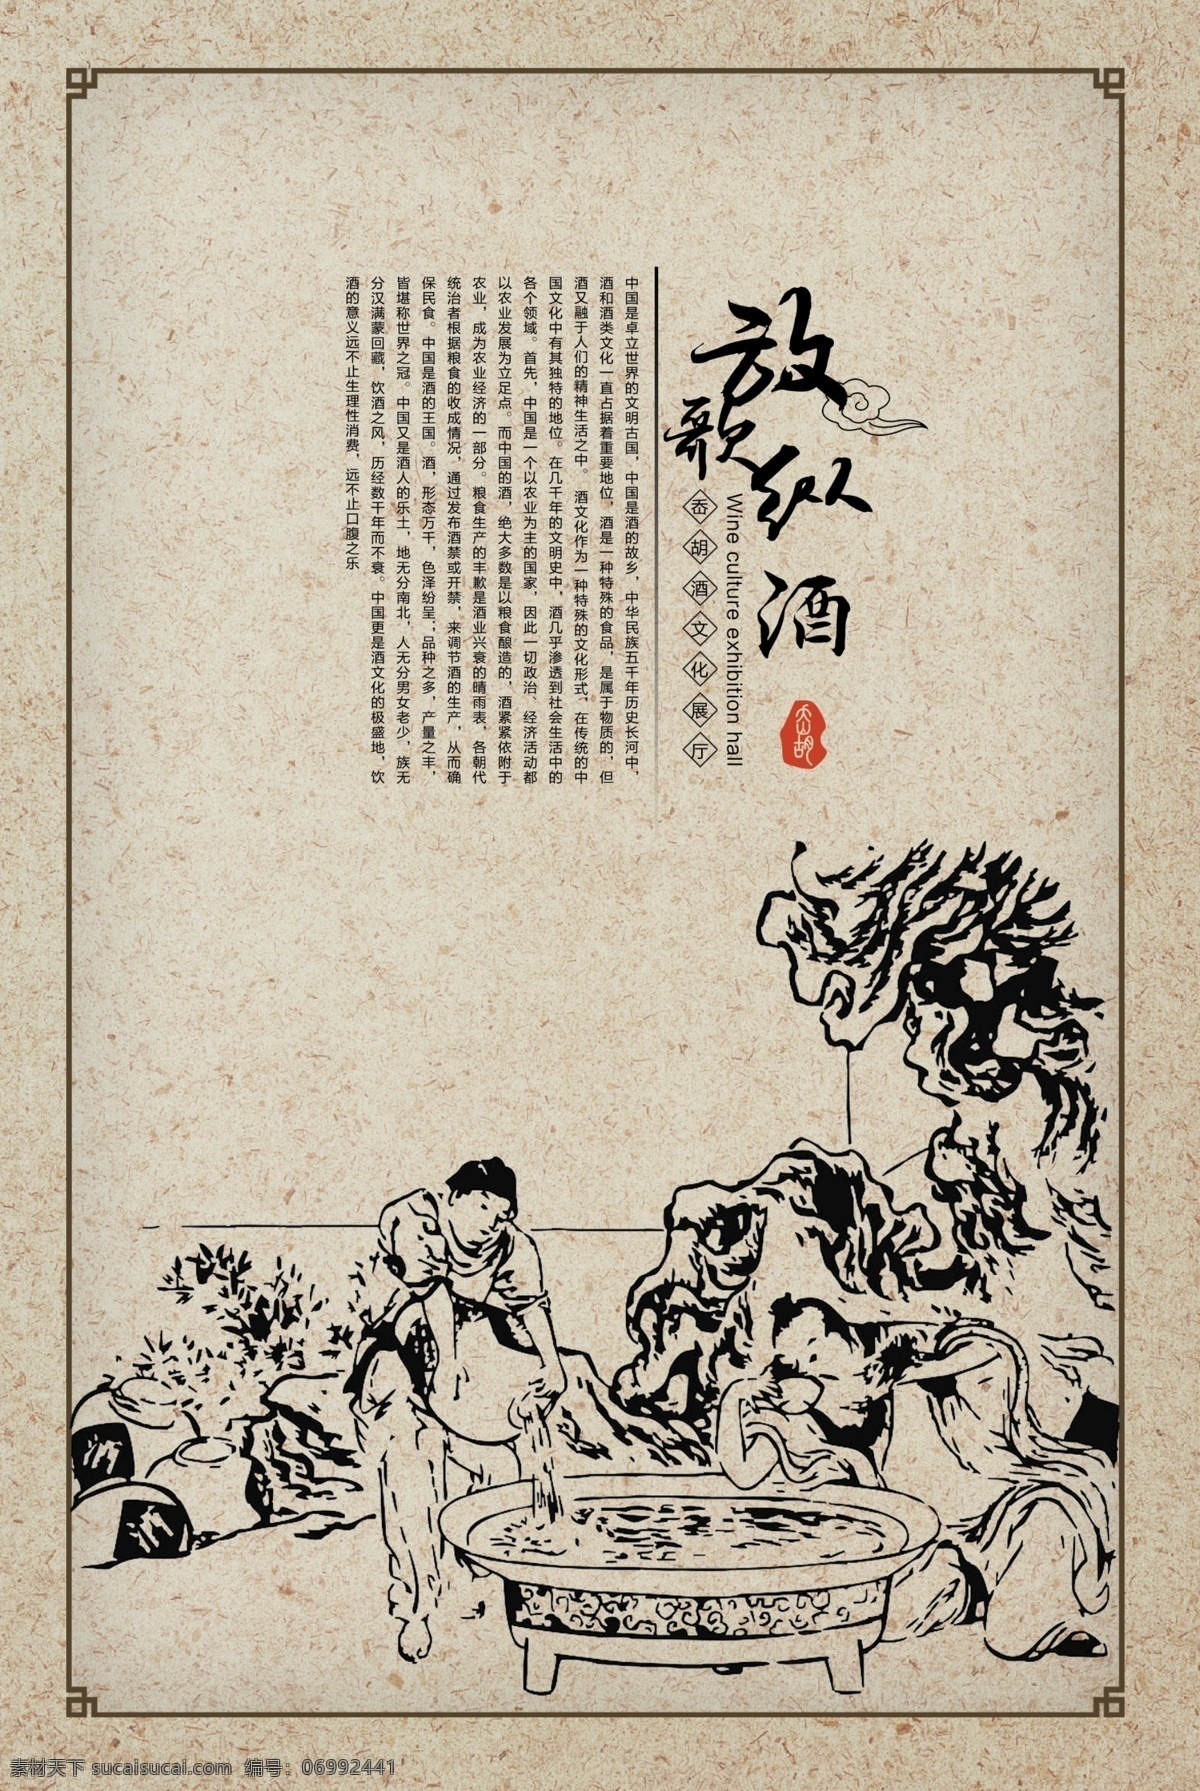 放歌纵酒
Wine culture exhibition hall
岙胡酒文化展厅
岙胡
中国是卓立世界的文明古国，中国是酒的故乡，中华民族五千年历史长河中，
酒和酒类文化一直占据着重要地位，酒是一种特殊的食品，是属于物质的，但
酒又融于人们的精神生活之中。酒文化作为一种特殊的文化形式，在传统的中
国文化中有其独特的地位。在几千年的文明史中，酒几乎渗透到社会生活中的
各个领域。首先，中国是一个以农业为主的国家，因此一切政治、经济活动都
以农业发展为立足点。而中国的酒，绝大多数是以粮食酿造的，酒紧紧依附于
农业，成为农业经济的一部分。粮食生产的丰歉是酒业兴衰的晴雨表，各朝代
统治者根据粮食的收成情况，通过发布酒禁或开禁，来调节酒的生产，从而确
保民食。中国是酒的王国。酒，形态万千，色泽纷呈；品种之多，产量之丰，
皆堪称世界之冠。中国又是酒人的乐土，地无分南北，人无分男女老少，族无
分汉满蒙回藏，饮酒之风，历经数千年而不衰。中国更是酒文化的极盛地，饮
酒的意义远不止生理性消费，远不止口腹之乐
酒
酒
素材天下 sucaisucai.com 编号：06992441